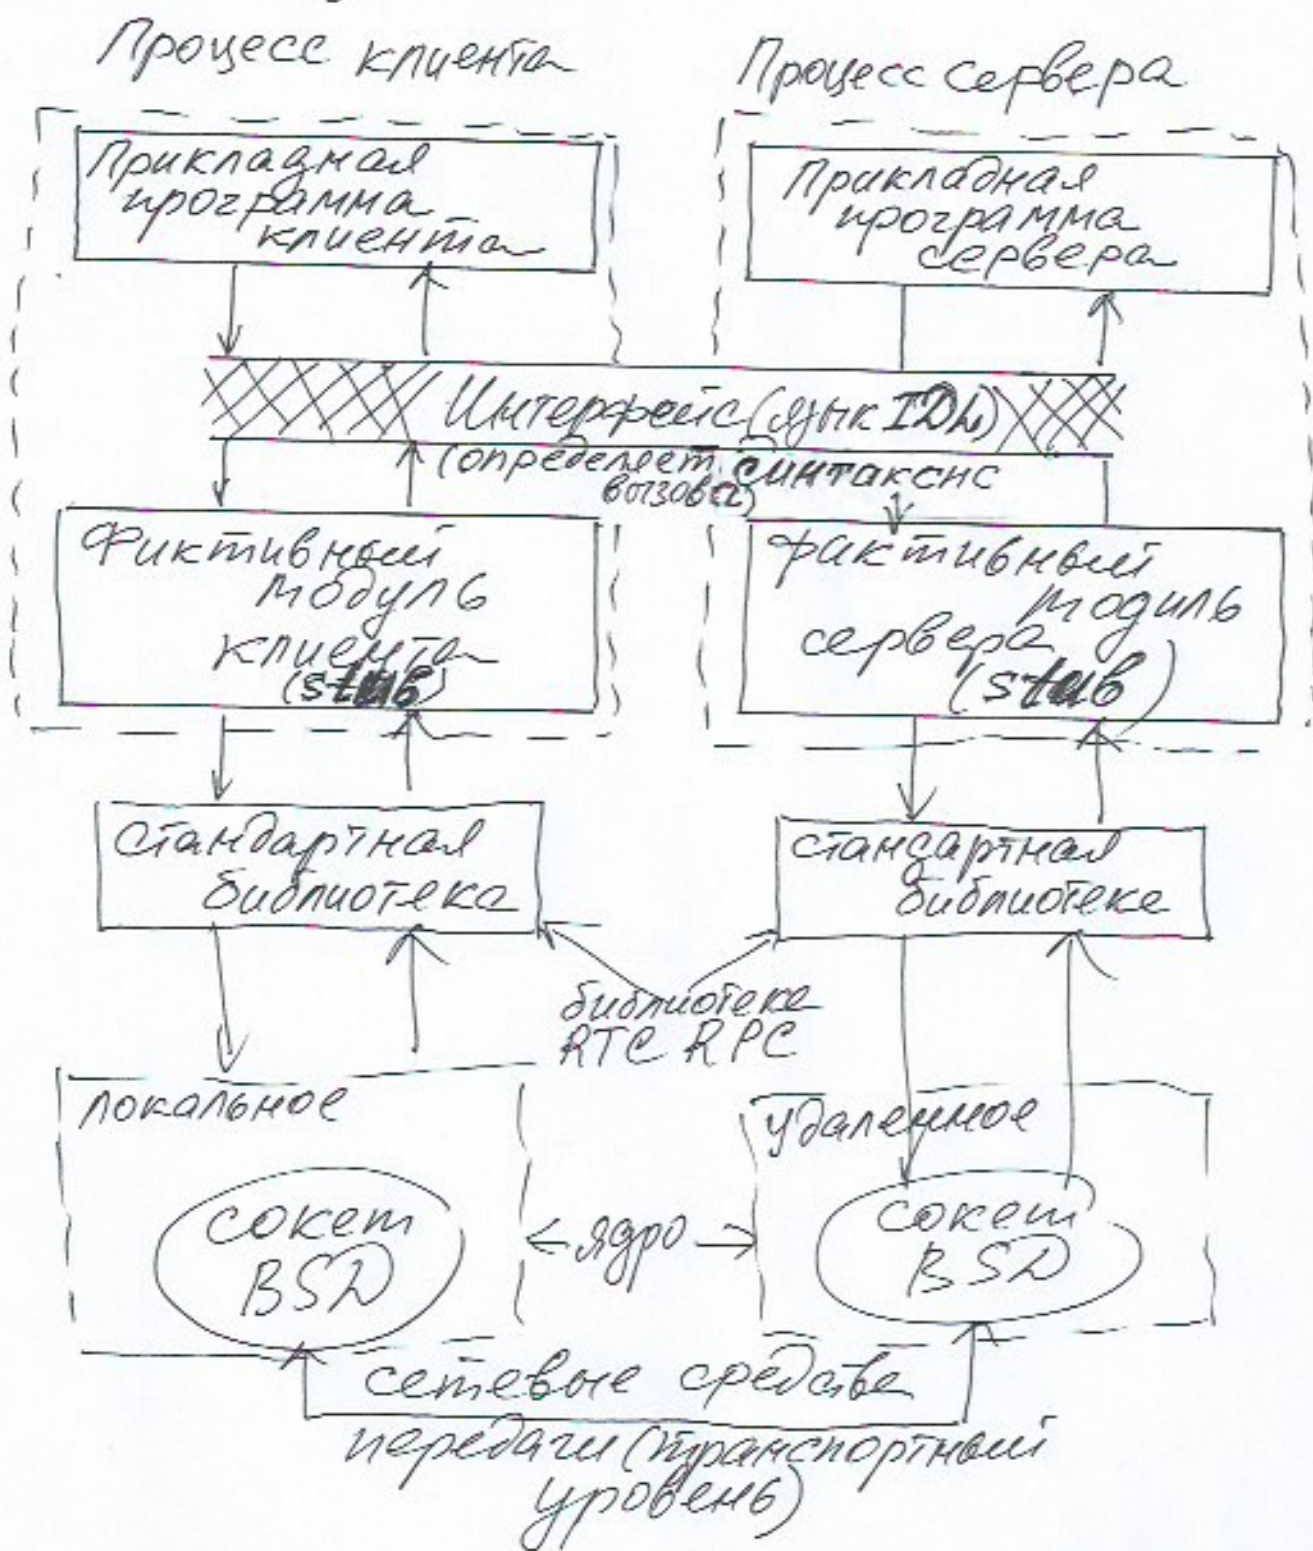 Процесс клиента
Процесс сервера
Прикладная
программа
клиента
Прикладная
программа
сервера
Интерфейс (язык IDL)
(определяет синтаксис
вызова)
Фиктивный
модуль
клиента
(stub)
фиктивный
модиль
сервера
(stub)
стандартная
библиотека
стансартная
библиотека
библиотека
RTC RPC
локальное
удаленное
сокет
BSD
ядро
сокет
BSD
сетевые средства
передачи (транспортный
уровень)